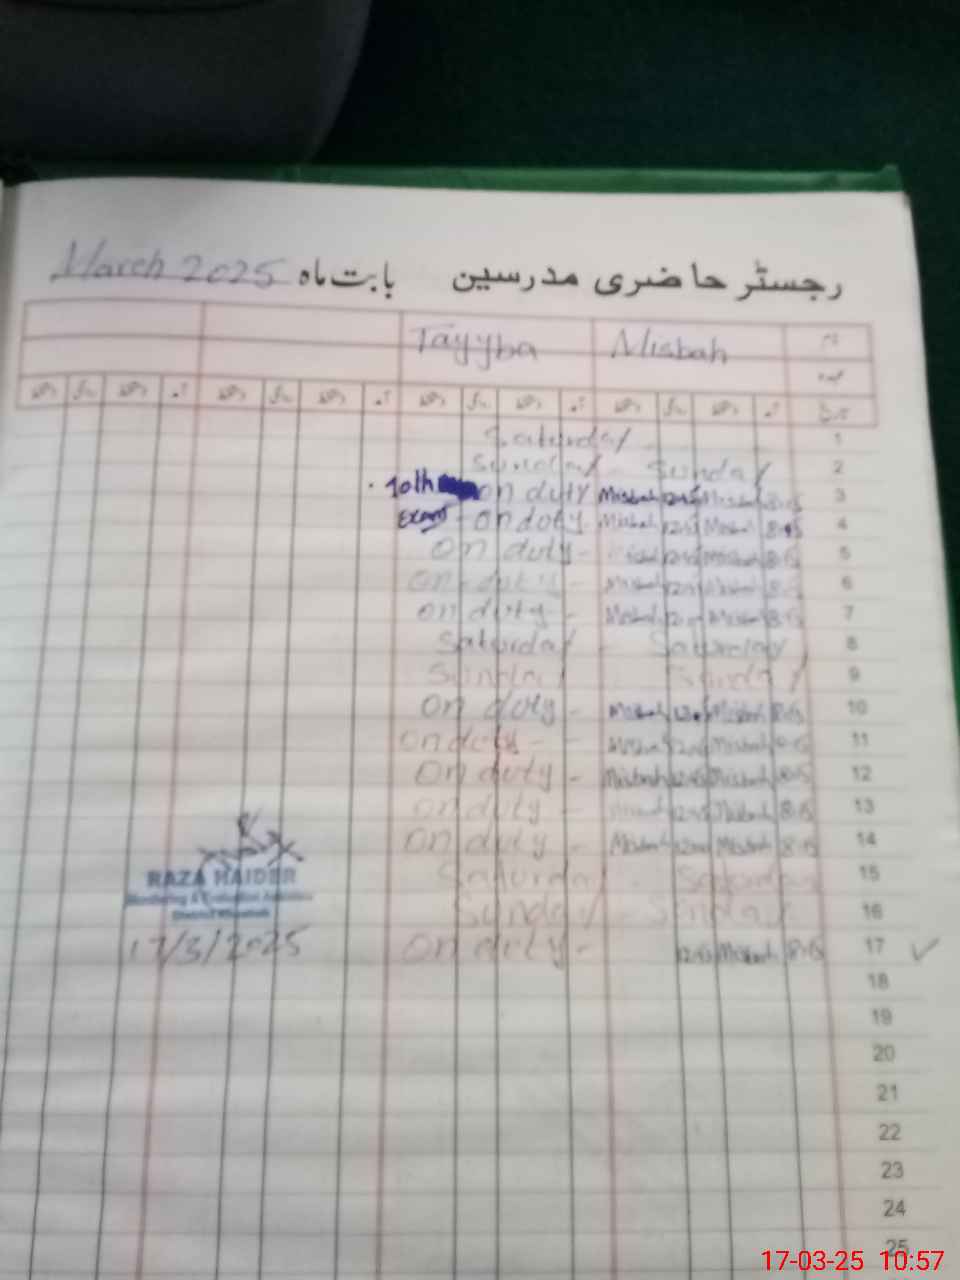 رجسٹر حاضری مدرسین بابت ماہ March 2025
نام Misbah Tayyba
عہدہ
تاریخ آمد دستخط دستخط آمد دستخط دستخط آمد دستخط دستخط آمد دستخط دستخط
1 Saturday
2 Sunday - Sunday
3 8:15 Misbah 12:45 Misbah on duty 10th
4 8:15 Misbah Misbah - on duty - Exam
5 8:15 Misbah on duty -
6 8:15 Misbah on duty -
7 8:15 Misbah Misbah on duty -
8 Saturday - Saturday
9 Sunday Sunday
10 8:15 Misbah Misbah on duty -
11 8:15 Misbah Misbah on duty - -
12 8:15 Misbah 12:45 Misbah on duty -
13 8:15 Misbah 12:45 on duty -
14 8:15 Misbah Misbah on duty -
15 Saturday Saturday
16 Sunday - Sunday
17 8:15 Misbah 12:45 on duty -
RAZA HAIDER
Monitoring & Evaluation Assistant
District
17/3/2025
18
19
20
21
22
23
24
25
17-03-25 10:57